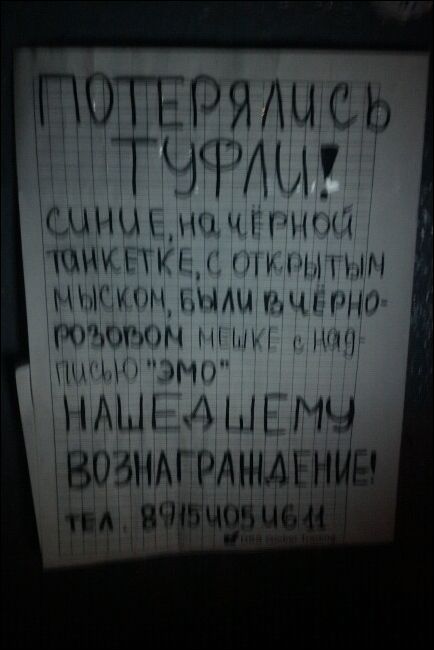 ПОТЕРЯЛИСЬ
ТУФЛИ!
СИНИЕ, НА ЧЁРНОЙ
ТАНКЕТКЕ, С ОТКРЫТЫМ
МЫСКОМ, БЫЛИ В ЧЁРНО-
РОЗОВОМ МЕШКЕ С НАД-
ПИСЬЮ "ЭМО"
НАШЕДШЕМУ
ВОЗНАГРАЖДЕНИЕ!
ТЕЛ. 89154054611